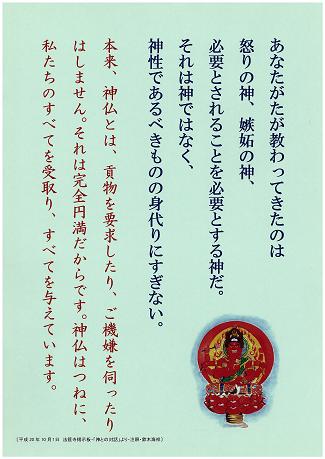 あなたがたが教わってきたのは
怒りの神、嫉妬の神、
必要とされることを必要とする神だ。
それは神ではなく、
神性であるべきものの身代りにすぎない。
本来、神仏とは、貢物を要求したり、ご機嫌を伺ったり
はしません。それは完全円満だからです。神仏はつねに、
私たちのすべてを受取り、すべてを与えています。
（平成20年10月1日 法龍寺掲示板・「神との対話」より・注釈・鈴木海修）